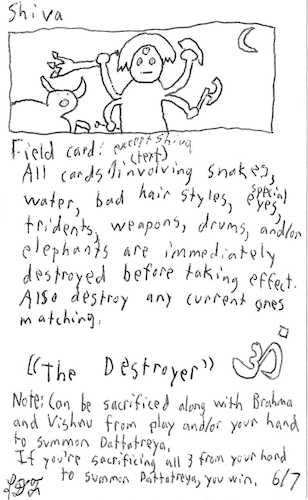 Shiva
Field card: except Shiva
(text)
All cards involving snakes,
water, bad hair styles, special eyes,
tridents, weapons, drums, and/or
elephants are immediately
destroyed before taking effect.
Also destroy any current ones
matching.
"The Destroyer" ॐ
Note: Can be sacrificed along with Brahma
and Vishnu from play and/or your hand
to summon Dattatreya.
If you're sacrificing all 3 from your hand
to summon Dattatreya, you win. 6/7